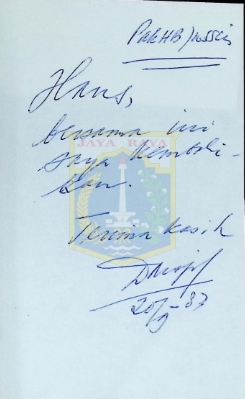 Pak HB Jassin
Hans,
bersama ini
JAYA RAYA
saya kembali-
kan.
Terima kasih
20/9-87